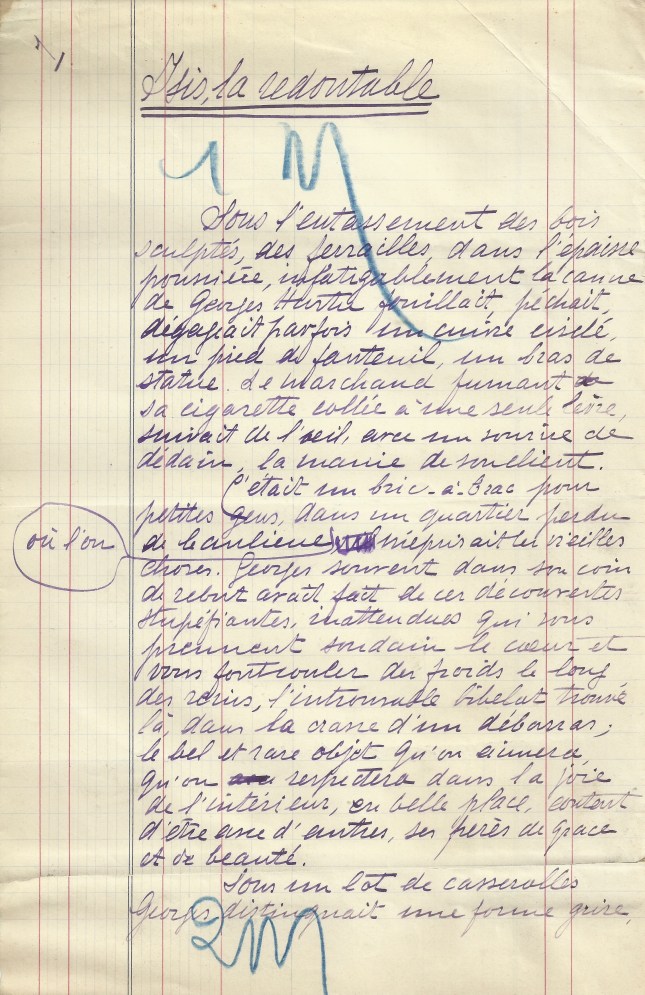 1
Isis, la redoutable
1 M
Sous l'entassement des bois
sculptés, des ferrailles, dans l'épaisse
poussière, infatigablement la canne
de Georges fouillait, pêchait,
dégageait parfois un cuivre ciselé,
un pied de fauteuil, un bras de
statue. Le marchand fumant
sa cigarette collée à une seule lèvre,
suivait de l'œil, avec un sourire de
dédain, la manie de son client.
C'était un bric-à-brac pour
petites gens, dans un quartier perdu
où l'on
de banlieue méprisait les vieilles
choses. Georges souvent dans son coin
de rebut avait fait de ces découvertes
stupéfiantes, inattendues qui vous
prennent soudain le cœur et
vous font couler des froids le long
des reins, l'introuvable bibelot trouvé
là, dans la crasse d'un débarras ;
le bel et rare objet qu'on aimera,
qu'on respectera dans la joie
de l'intérieur, en belle place, content
d'être avec d'autres, ses frères de grâce
et de beauté.
Sous un lot de casserolles
Georges distinguait une forme grise,
2 M